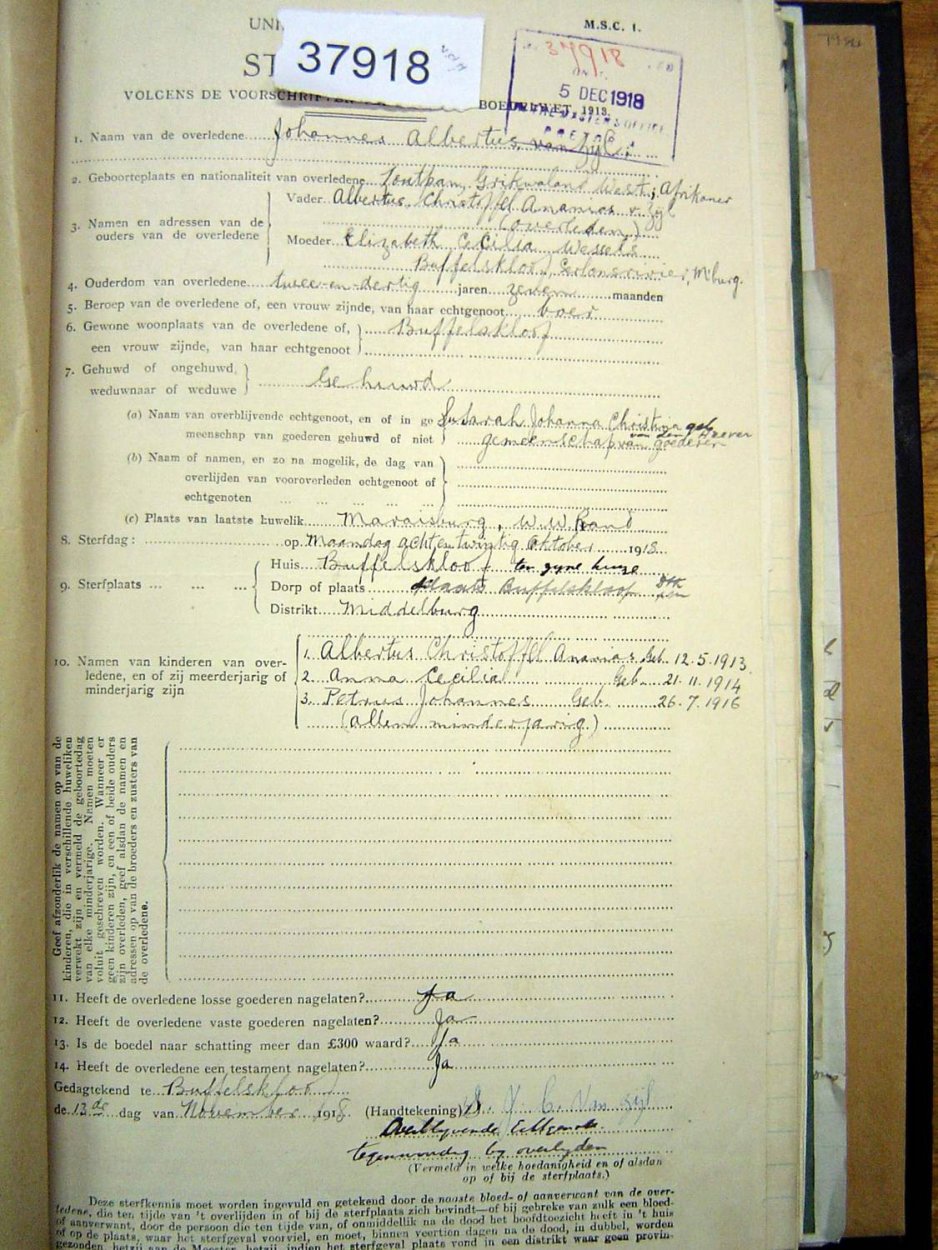 M.S.C. 1.
UNI
37918
37918
5 DEC 1918
ST
VOLGENS DE VOORSCHRIFTEN BOEDELWET, 1913.
1. Naam van de overledene Johannes Albertus van Zyl
2. Geboorteplaats en nationaliteit van overledene Zoutpan, Grikwaland West; Afrikaner
3. Namen en adressen van de ouders van de overledene
Vader Albertus Christoffel Ananias v. Zyl
(overleden)
Moeder Elizabeth Cecilia Wessels
Buffelskloof, M'burg.
4. Ouderdom van overledene twee-en-dertig jaren zeven maanden
5. Beroep van de overledene of, een vrouw zijnde, van haar echtgenoot boer
6. Gewone woonplaats van de overledene of, Buffelskloof
een vrouw zijnde, van haar echtgenoot
7. Gehuwd of ongehuwd, weduwnaar of weduwe Gehuwd
(a) Naam van overblijvende echtgenoot, en of in ge Sarah Johanna Christina geb
van den Heever
meenschap van goederen gehuwd of niet gemeenschap van goederen
(b) Naam of namen, en zo na mogelik, de dag van
overlijden van vooroverleden echtgenoot of
echtgenoten
(c) Plaats van laatste huwelik Maraisburg, W.W. Rand
8. Sterfdag: op Maandag acht en twintig Oktober 1918
9. Sterfplaats
Huis Buffelskloof ten zyne huize
Dorp of plaats plaats Buffelskloof
Distrikt Middelburg
10. Namen van kinderen van overledene, en of zij meerderjarig of minderjarig zijn
1. Albertus Christoffel Ananias Geb. 12.5.1913
2. Anna Cecilia Geb. 21.11.1914
3. Petrus Johannes Geb. 26.7.1916
(allen minderjarig)
Geef afzonderlik de namen op van de
kinderen, die in verschillende huweliken
verwekt zijn en vermeld de geboortedag
van elke minderjarige. Namen moeten
voluit geschreven worden. Wanneer er
geen kinderen zijn, en een of beide ouders
zijn overleden, geef alsdan de namen en
adressen op van de broeders en zusters van
de overledene.
11. Heeft de overledene losse goederen nagelaten? Ja
12. Heeft de overledene vaste goederen nagelaten? Ja
13. Is de boedel naar schatting meer dan £300 waard? Ja
14. Heeft de overledene een testament nagelaten? Ja
Gedagtekend te Buffelskloof
de 12de dag van November 1918 (Handtekening) C. Van Zijl
Overblyvende Echtgenote
tegenwoordig by overlyden
(Vermeld in welke hoedanigheid en of alsdan
op of bij de sterfplaats.)
Deze sterfkennis moet worden ingevuld en getekend door de naaste bloed- of aanverwant van de over-
ledene, die ten tijde van 't overlijden in of bij de sterfplaats zich bevindt—of bij gebreke van zulk een bloed-
of aanverwant, door de persoon die ten tijde van, of onmiddellik na de dood het hoofdtoezicht heeft in 't huis
of op de plaats, waar het sterfgeval voorviel, en moet, binnen veertien dagen na de dood, in dubbel, worden
gezonden hetzij aan de Meester, hetzij, indien het sterfgeval plaats vond in een distrikt waar geen provin-